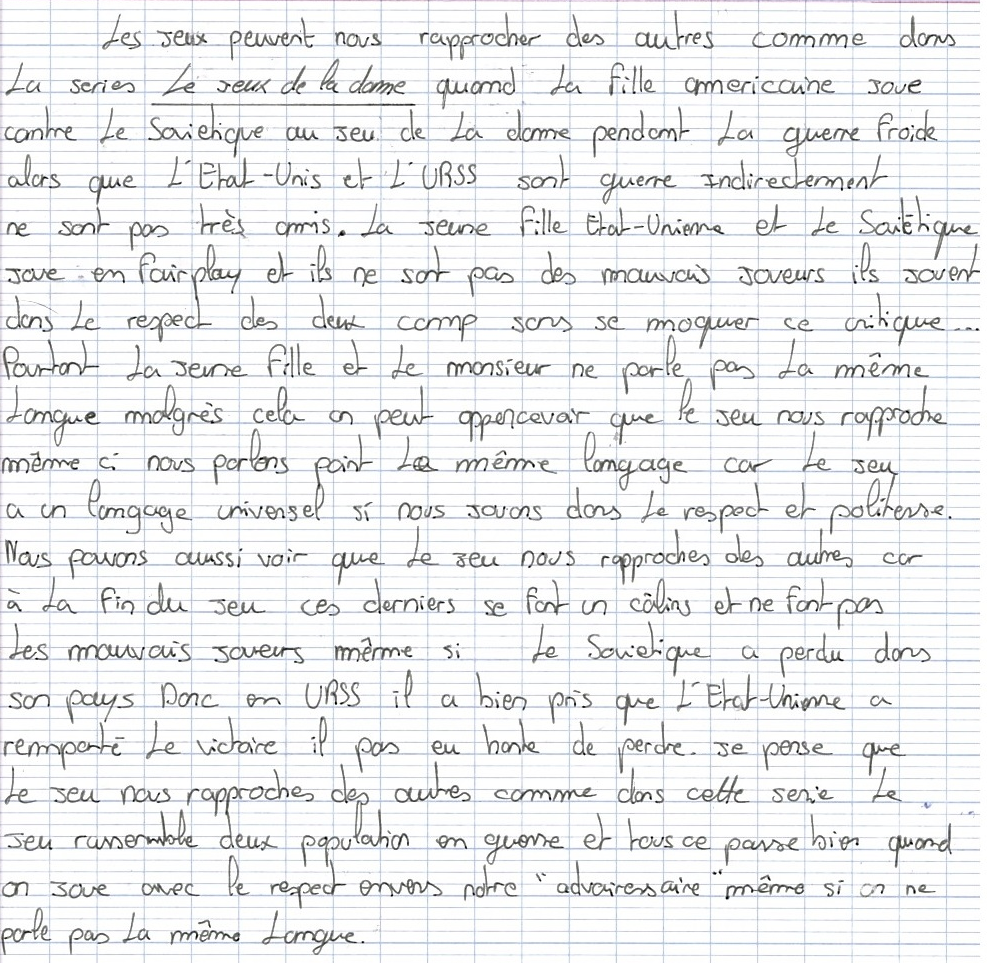 Les jeux peuvent nous rapprocher des autres comme dans
La series Le jeux de la dame quand La fille americaine joue
contre Le Soviétique au jeu de La dame pendant La guerre froide
alors que L'Etat-Unis et L'URSS sont guerre Indirectement
ne sont pas très amis. La jeune fille Etat-Unienne et Le Soitétique
joue en fairplay et ils ne sont pas des mauvais joueurs ils jouent
dans Le respect des deux camp sans se moquer ce critique...
Pourtant La jeune fille et Le monsieur ne parle pas La même
Langue malgrès cela on peut appercevoir que le jeu nous rapproche
même ci nous parlons point La même langage car Le jeu
a un langage universel si nous jouons dans Le respect et politesse.
Nous pouvons aussi voir que Le jeu nous rapproches des autres car
à La fin du jeu ces derniers se font un câlins et ne font pas
Les mauvais joueurs même si Le Sovietique a perdu dans
son pays Donc en URSS il a bien pris que L'Etat-Unienne a
remporté Le victoire il pas eu honte de perdre. Je pense que
Le jeu nous rapproches des autres comme dans cette serie Le
jeu rassemble deux population en guerre et tous ce passe bien quand
on joue avec le respect envers notre "advairessaire" même si on ne
parle pas La même Langue.